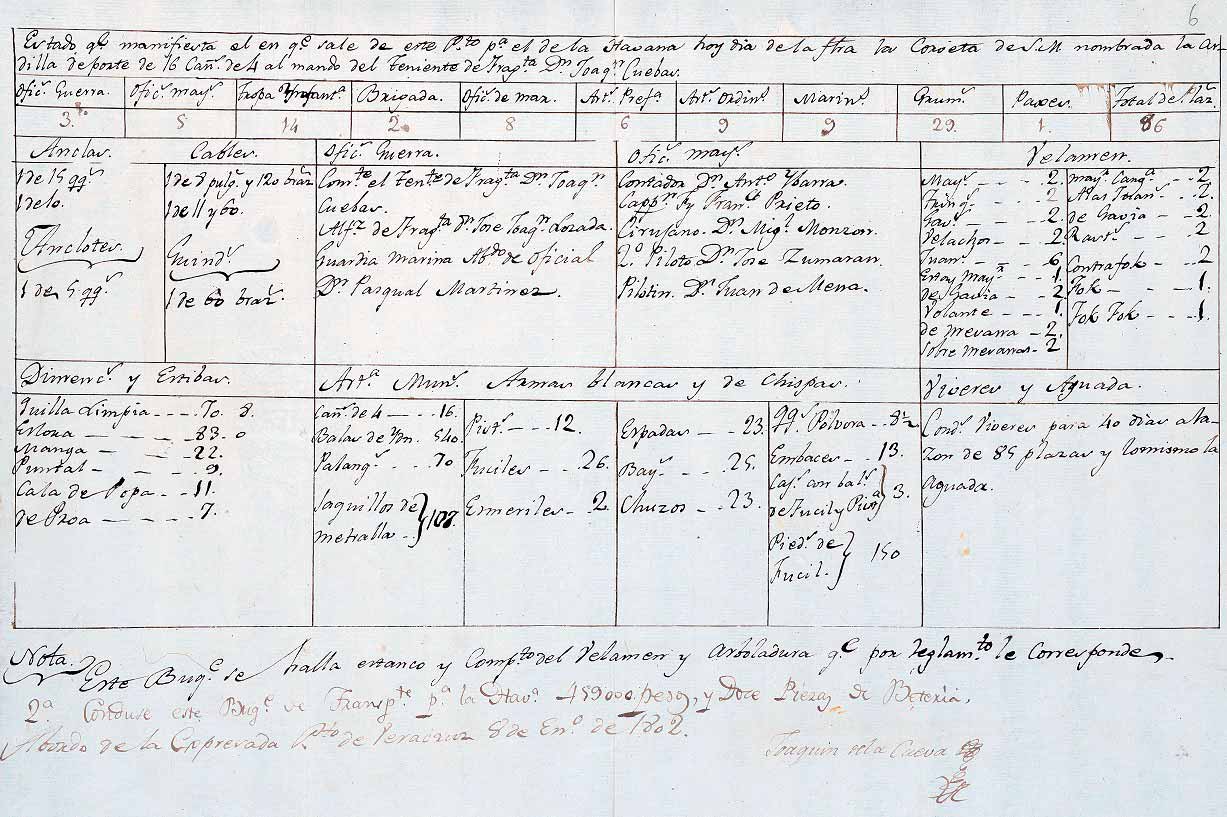 6
Estado qe. manifiesta el en qe. sale de este Pto. pa. el de la Havana hoy dia de la fha la Corveta de S.M. nombrada la Ar-
dilla de porte de 16 Cañs. de 4 al mando del teniente de Fragta. Dn. Joaqn. Cuebas.
Ofics. Guerra. Ofics. mays. Tropa Ynfanta. Brigada. Ofics. de mar. Arta. Prefa. Arta. Ordins. Marins. Grums. Paxes. Total de Plazs.
3. 5 14 2. 8 6 9 9 29. 1. 86
Anclas. Cables. Ofics. Guerra. Ofics. mays. Velamen.
1 de 15 qqs.
1 de 10.
Anclotes.
1 de 5 qqs.
1 de 8 pulgs. y 120 brazs.
1 de 11 y 60.
Guinds.
1 de 60 brazs.
Comte. el tente. de Fragta. Dn. Joaqn.
Cuebas.
Alfz. de Fragta. Dn. Jose Joaqn. Lozada.
Guardia Marina Abdo. de oficial
Dn. Pasqual Martinez.
Contador Dn. Anto. Ybarra.
Cappn. Fy Frans. Prieto.
Cirujano. Dn. Migl. Monzon.
2o. Piloto Dn. Jose Zumaran.
Pilotin. Dn. Juan de Mena.
Mays. - - - 2.
Trinqs. 2
Gavs. - - - 2
Velachos - - 2
Juans. - - 6
Estay mays. - 1.
de Gavia - - 2.
Volante - - 1.
de mesana - 2.
Sobre mesanas - 2
mays. Cangs. - - 2
Alas Juans. - 2.
de Gavia - - 2
Rasts. - - 2
Contrafok - - 2
Fok - - - 1.
Fok Fok - - - 1.
Dimencs. y Estibas. Arta. Muns. Armas blancas y de Chispas. Viveres y Aguada.
Quilla Limpia - - - 70. 8.
Eslora - - - 83. 0
Manga - - - 22.
Puntal - - - 9.
Cala de Popa - - 11.
de Proa - - - 7.
Cañs. de 4 - - 16.
Balas de Ydn. 540.
Palanqs. - - 70
Saquillos de
metralla - - } 108.
Pists. - - - 12.
Fuciles - - 26.
Esmeriles - - 2
Espadas - - 23.
Bays. - - 25.
Chuzos - - 23.
qqs. Pólvora - - 8½
Embaces - - 13.
Cajs. con bals.
de Fucil y Pista. } 3.
Pieds. de
Fucil. } 150
Conds. Viveres para 40 dias a ra-
zon de 85 plazas y lo mismo la
Aguada.
Nota.
Este Buqe. se halla estanco y Compto. del Velamen y Arboladura qe. por Reglamto. le corresponde.
2a. Conduse este Buqe. de Transpte. pa. la Hava. 459000 pesos, y Doce Piezas de Beteria.
Abordo de la Expresada Pto. de Veracruz 8 de Eno. de 1802.
Joaquin de la Cueva